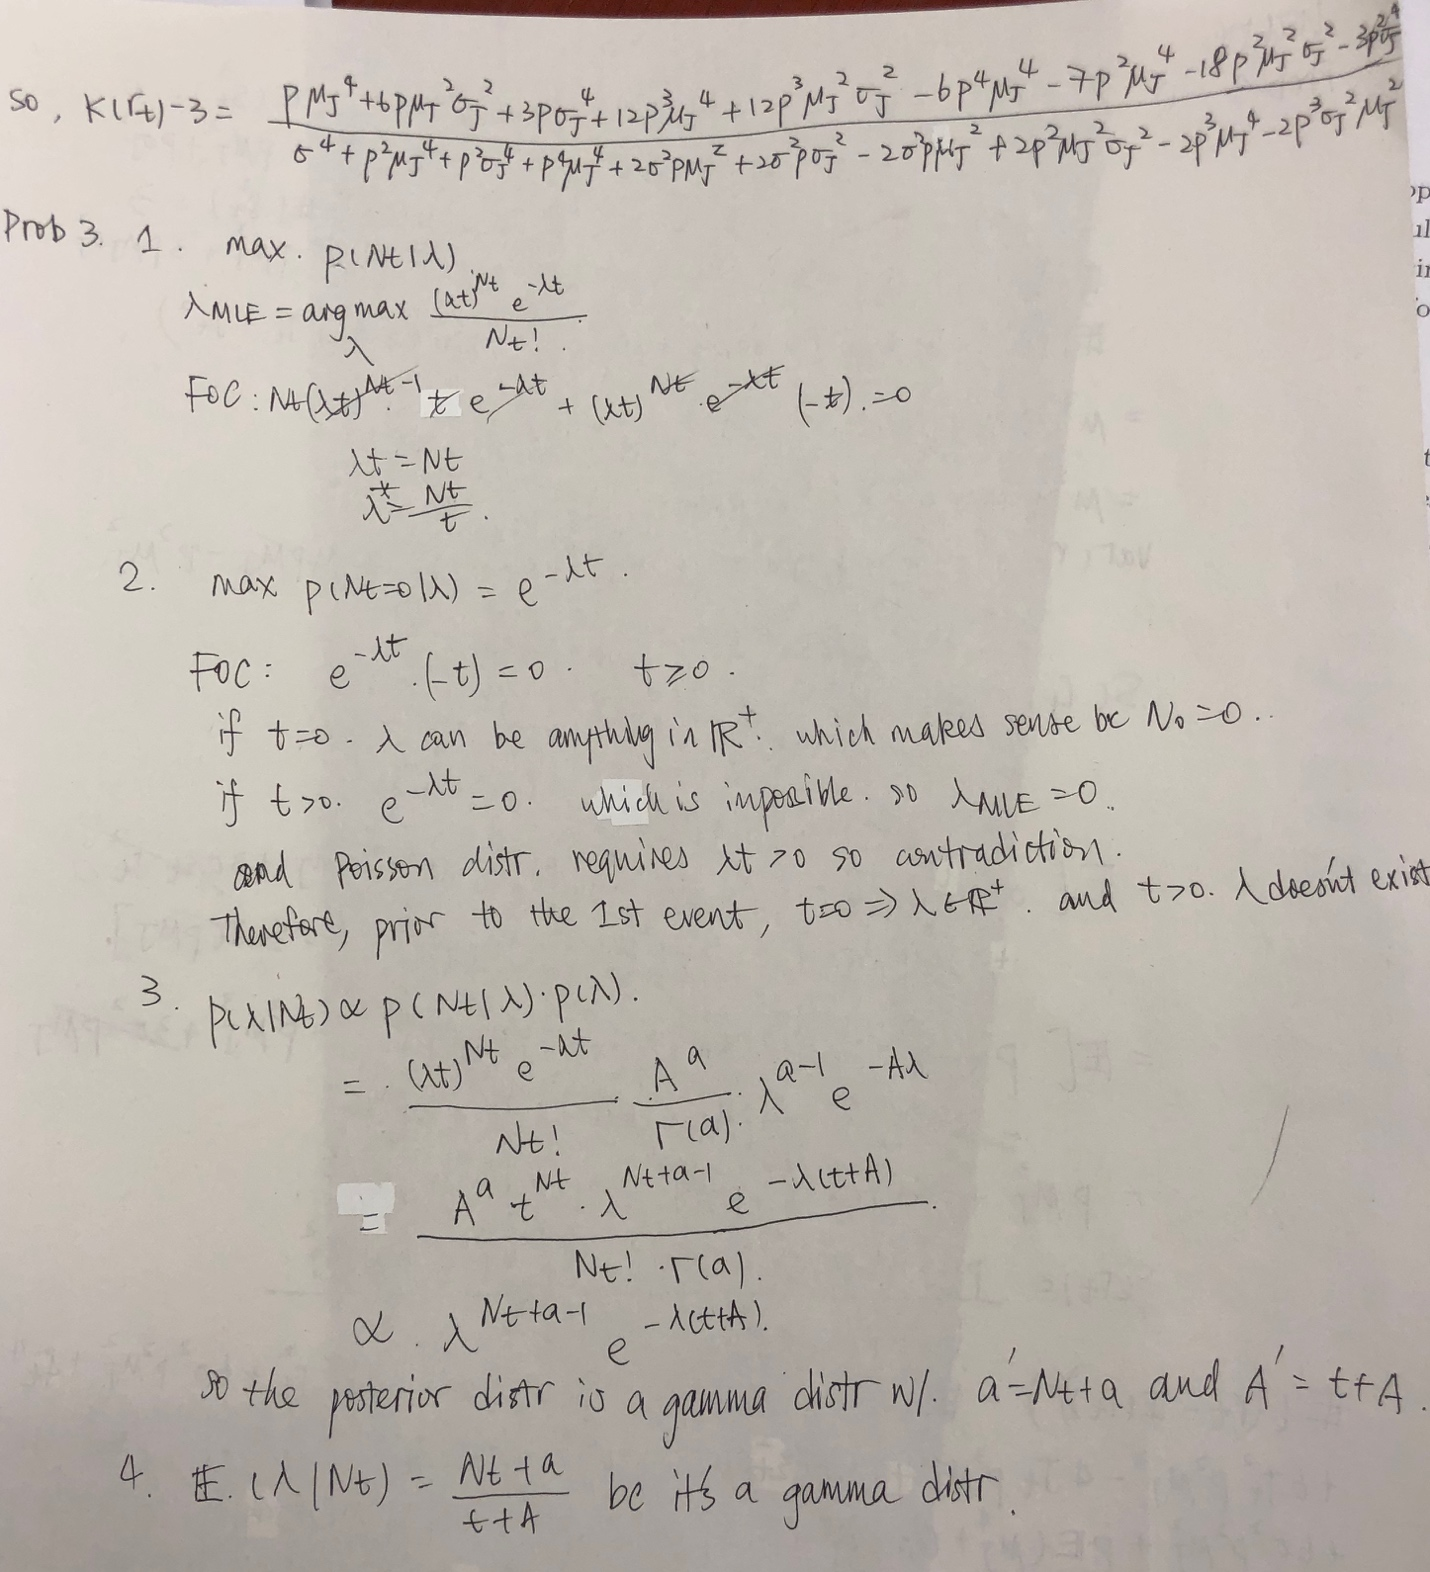 so, K(rt)-3 = (pμ_J^4+6pμ_J^2σ_J^2+3pσ_J^4+12p^3μ_J^4+12p^3μ_J^2σ_J^2-6p^4μ_J^4-7p^2μ_J^4-18p^2μ_J^2σ_J^2-3p^2σ_J^4)/(σ^4+p^2μ_J^4+p^2σ_J^4+p^4μ_J^4+2σ^2pμ_J^2+2σ^2pσ_J^2-2σ^2p^2μ_J^2+2p^2μ_J^2σ_J^2-2p^3μ_J^4-2p^3σ_J^2μ_J^2)
Prob 3. 1. max. p(Nt|λ)
λMLE = argmax_λ ((λt)^Nt e^-λt)/Nt!.
FOC: Nt(λt)^Nt-1 t e^-λt + (λt)^Nt · e^-λt (-t). =0
λt = Nt
λ* = Nt/t.
2. max p(Nt=0|λ) = e^-λt.
FOC: e^-λt.(-t) = 0. t≥0.
if t=0. λ can be anything in ℝ+. which makes sense bc N0=0..
if t>0. e^-λt = 0. which is impossible. so λMLE =0.
and Poisson distr. requires λt >0 so contradiction.
Therefore, prior to the 1st event, t=0 ⇒ λ∈ℝ+. and t>0. λ doesn't exist
3. p(λ|Nt) ∝ p(Nt|λ)·p(λ).
= ((λt)^Nt e^-λt)/Nt! A^a/Γ(a). λ^a-1 e^-Aλ
= (A^a t^Nt · λ^Nt+a-1 e^-λ(t+A))/(Nt! ·Γ(a)).
∝. λ^Nt+a-1 e^-λ(t+A).
so the posterior distr is a gamma distr w/. a'=Nt+a and A' = t+A.
4. 𝔼.(λ|Nt) = (Nt+a)/(t+A) bc it's a gamma distr.